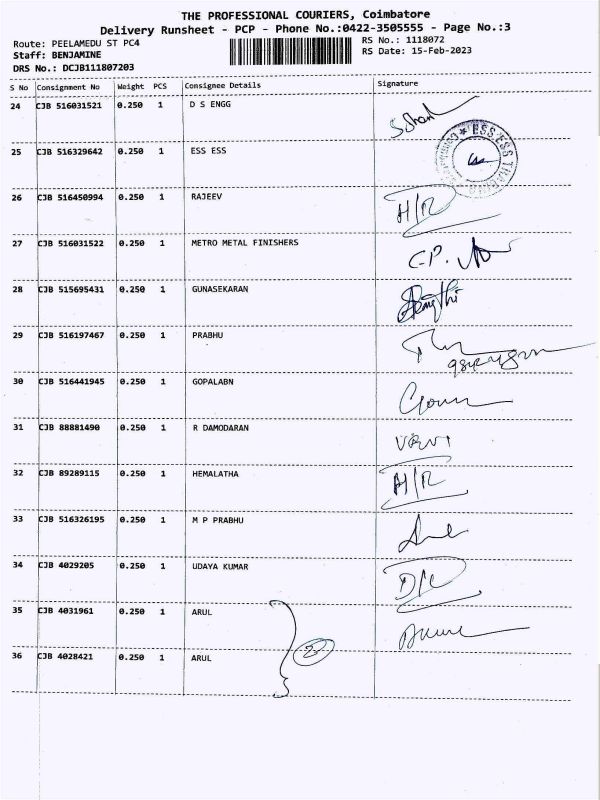 THE PROFESSIONAL COURIERS, Coimbatore
Delivery Runsheet - PCP - Phone No.:0422-3505555 - Page No.:3
Route: PEELAMEDU ST PC4 RS No.: 1118072
Staff: BENJAMINE RS Date: 15-Feb-2023
DRS No.: DCJB111807203
S No Consignment No Weight PCS Consignee Details Signature
24 CJB 516031521 0.250 1 D S ENGG
25 CJB 516329642 0.250 1 ESS ESS
ESS ESS
26 CJB 516450994 0.250 1 RAJEEV H/R
27 CJB 516031522 0.250 1 METRO METAL FINISHERS C.P.
28 CJB 515695431 0.250 1 GUNASEKARAN
29 CJB 516197467 0.250 1 PRABHU
30 CJB 516441945 0.250 1 GOPALABN
31 CJB 88881490 0.250 1 R DAMODARAN
32 CJB 89289115 0.250 1 HEMALATHA H/R
33 CJB 516326195 0.250 1 M P PRABHU
34 CJB 4029205 0.250 1 UDAYA KUMAR D/L
35 CJB 4031961 0.250 1 ARUL
36 CJB 4028421 0.250 1 ARUL 2